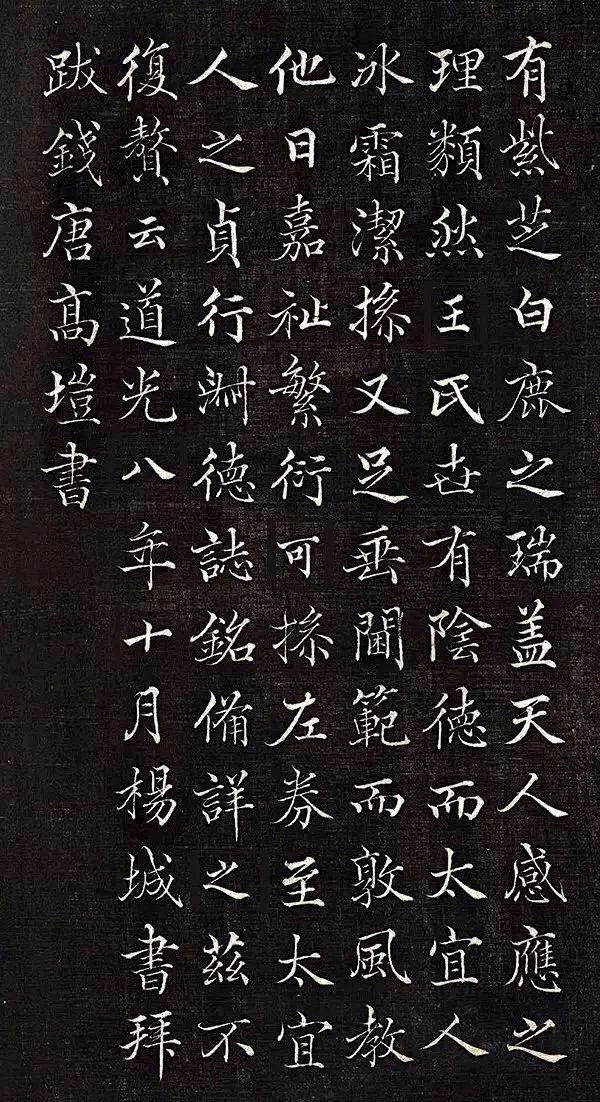 有紫芝白鹿之瑞盖天人感應之
理類然王氏世有陰德而太宜人
冰霜潔操又足垂閫範而敦風教
他日嘉祉繁衍可操左券至太宜
人之貞行淑德誌銘備詳之茲不
復贅云道光八年十月楊城書拜
跋錢唐高塏書